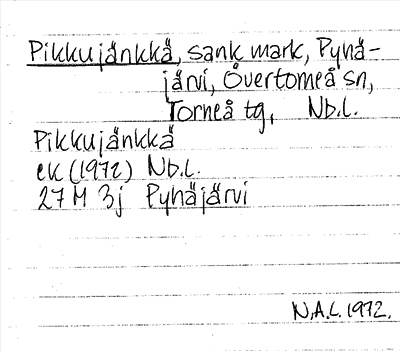 Pikkujänkkä, sank mark, Pyhä-
järvi, Övertorneå sn,
Torneå tg, Nb.l.
Pikkujänkkä
ek (1972) Nb.l.
27 M 3j Pyhäjärvi
N.A.L. 1972.